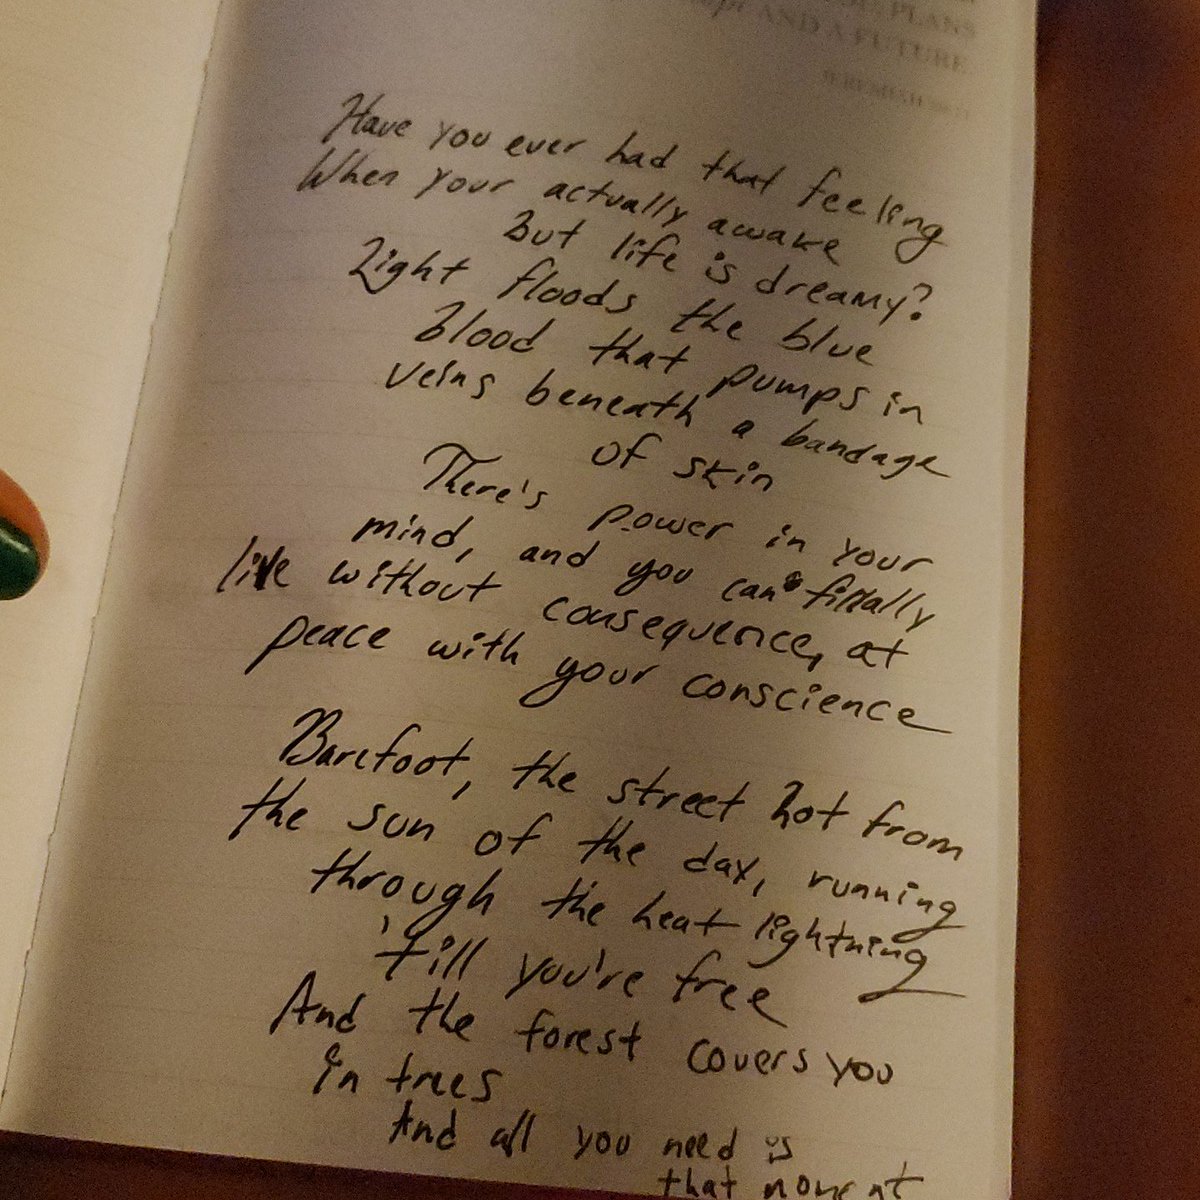 PLANS
AND A FUTURE.
Have you ever had that feeling
When your actually awake
But life is dreamy?
Light floods the blue
Blood that pumps in
veins beneath a bandage
of skin
There's power in your
mind, and you can finally
live without consequence, at
peace with your conscience
Barefoot, the street hot from
the sun of the day, running
through the heat lightning
'till you're free
And the forest covers you
in trees
And all you need is
that moment